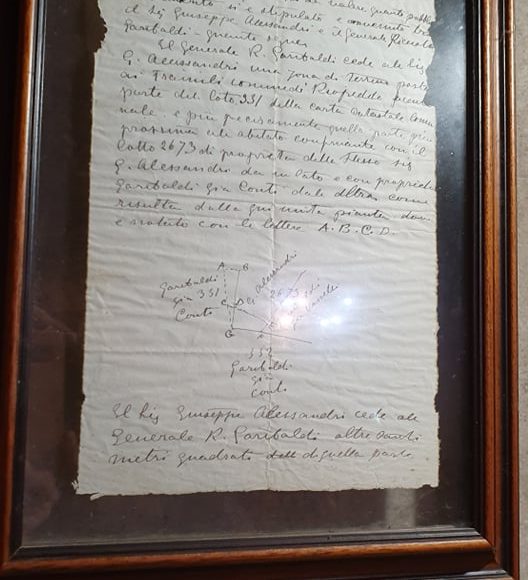 si è stipulato e convenuto tra
il Sig Giuseppe Alessandri e il Generale Ricciotti
Garibaldi - quanto segue
Il Generale R. Garibaldi cede al Sig
G. Alessandri una zona di terreno posta
in
parte del loto 331 della carta catastale
e più precisamente quella parte più
prossima all abitato confinante con il
lotto 2673 di proprietà dello stesso sig
G. Alessandri da un lato e con proprietà
Garibaldi già Conti dall altra come
risulta dalla qui unita pianta dove
è notato con le lettere A. B. C. D.
A B
Garibaldi
già 331
Conti
C D
G. Alessandri
2673
G
Garibaldi
già
Conti
Il Sig Giuseppe Alessandri cede al
Generale R. Garibaldi altre tanti
metri quadrati di quella parte